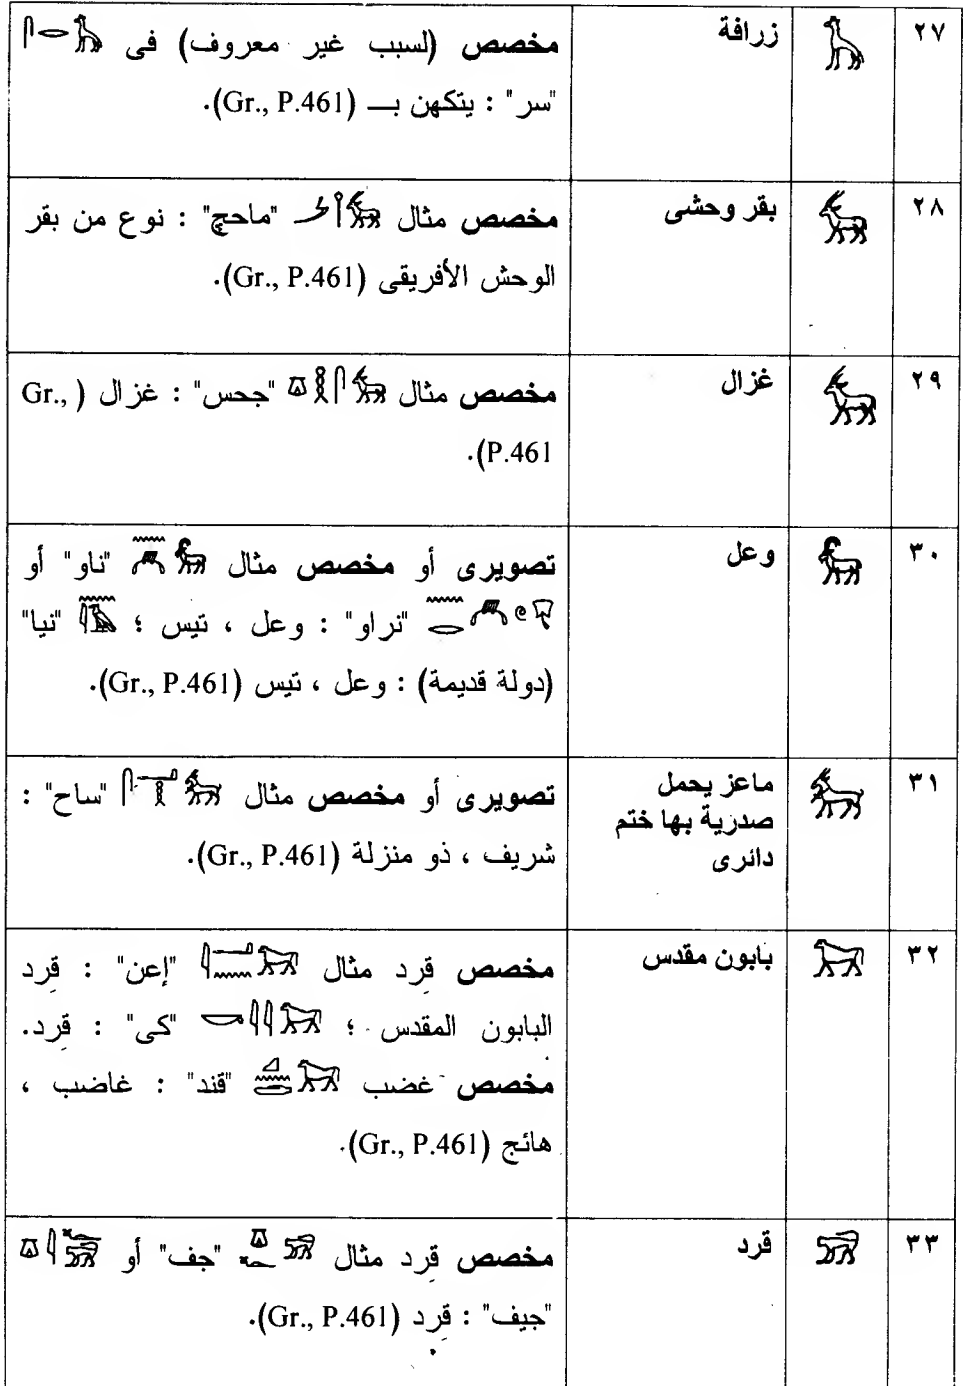 ٢٧ 𓃱 زرافة مخصص (لسبب غير معروف) فى 𓋴𓂋𓃱
"سر" : يتكهن بـ (Gr., P.461).
٢٨ بقر وحشى مخصص مثال "ماحچ" : نوع من بقر
الوحش الأفريقى (Gr., P.461).
٢٩ غزال مخصص مثال "جحس" : غزال (Gr.,
P.461).
٣٠ وعل تصويرى أو مخصص مثال "ناو" أو
"نراو" : وعل ، تيس ؛ "نيا"
(دولة قديمة) : وعل ، تيس (Gr., P.461).
٣١ ماعز يحمل
صدرية بها ختم
دائرى
تصويرى أو مخصص مثال "ساح" :
شريف ، ذو منزلة (Gr., P.461).
٣٢ بابون مقدس مخصص قرد مثال "إعن" : قرد
البابون المقدس ؛ "كى" : قرد.
مخصص غضب "قند" : غاضب ،
هائج (Gr., P.461).
٣٣ قرد مخصص قرد مثال "جف" أو
"جيف" : قرد (Gr., P.461).